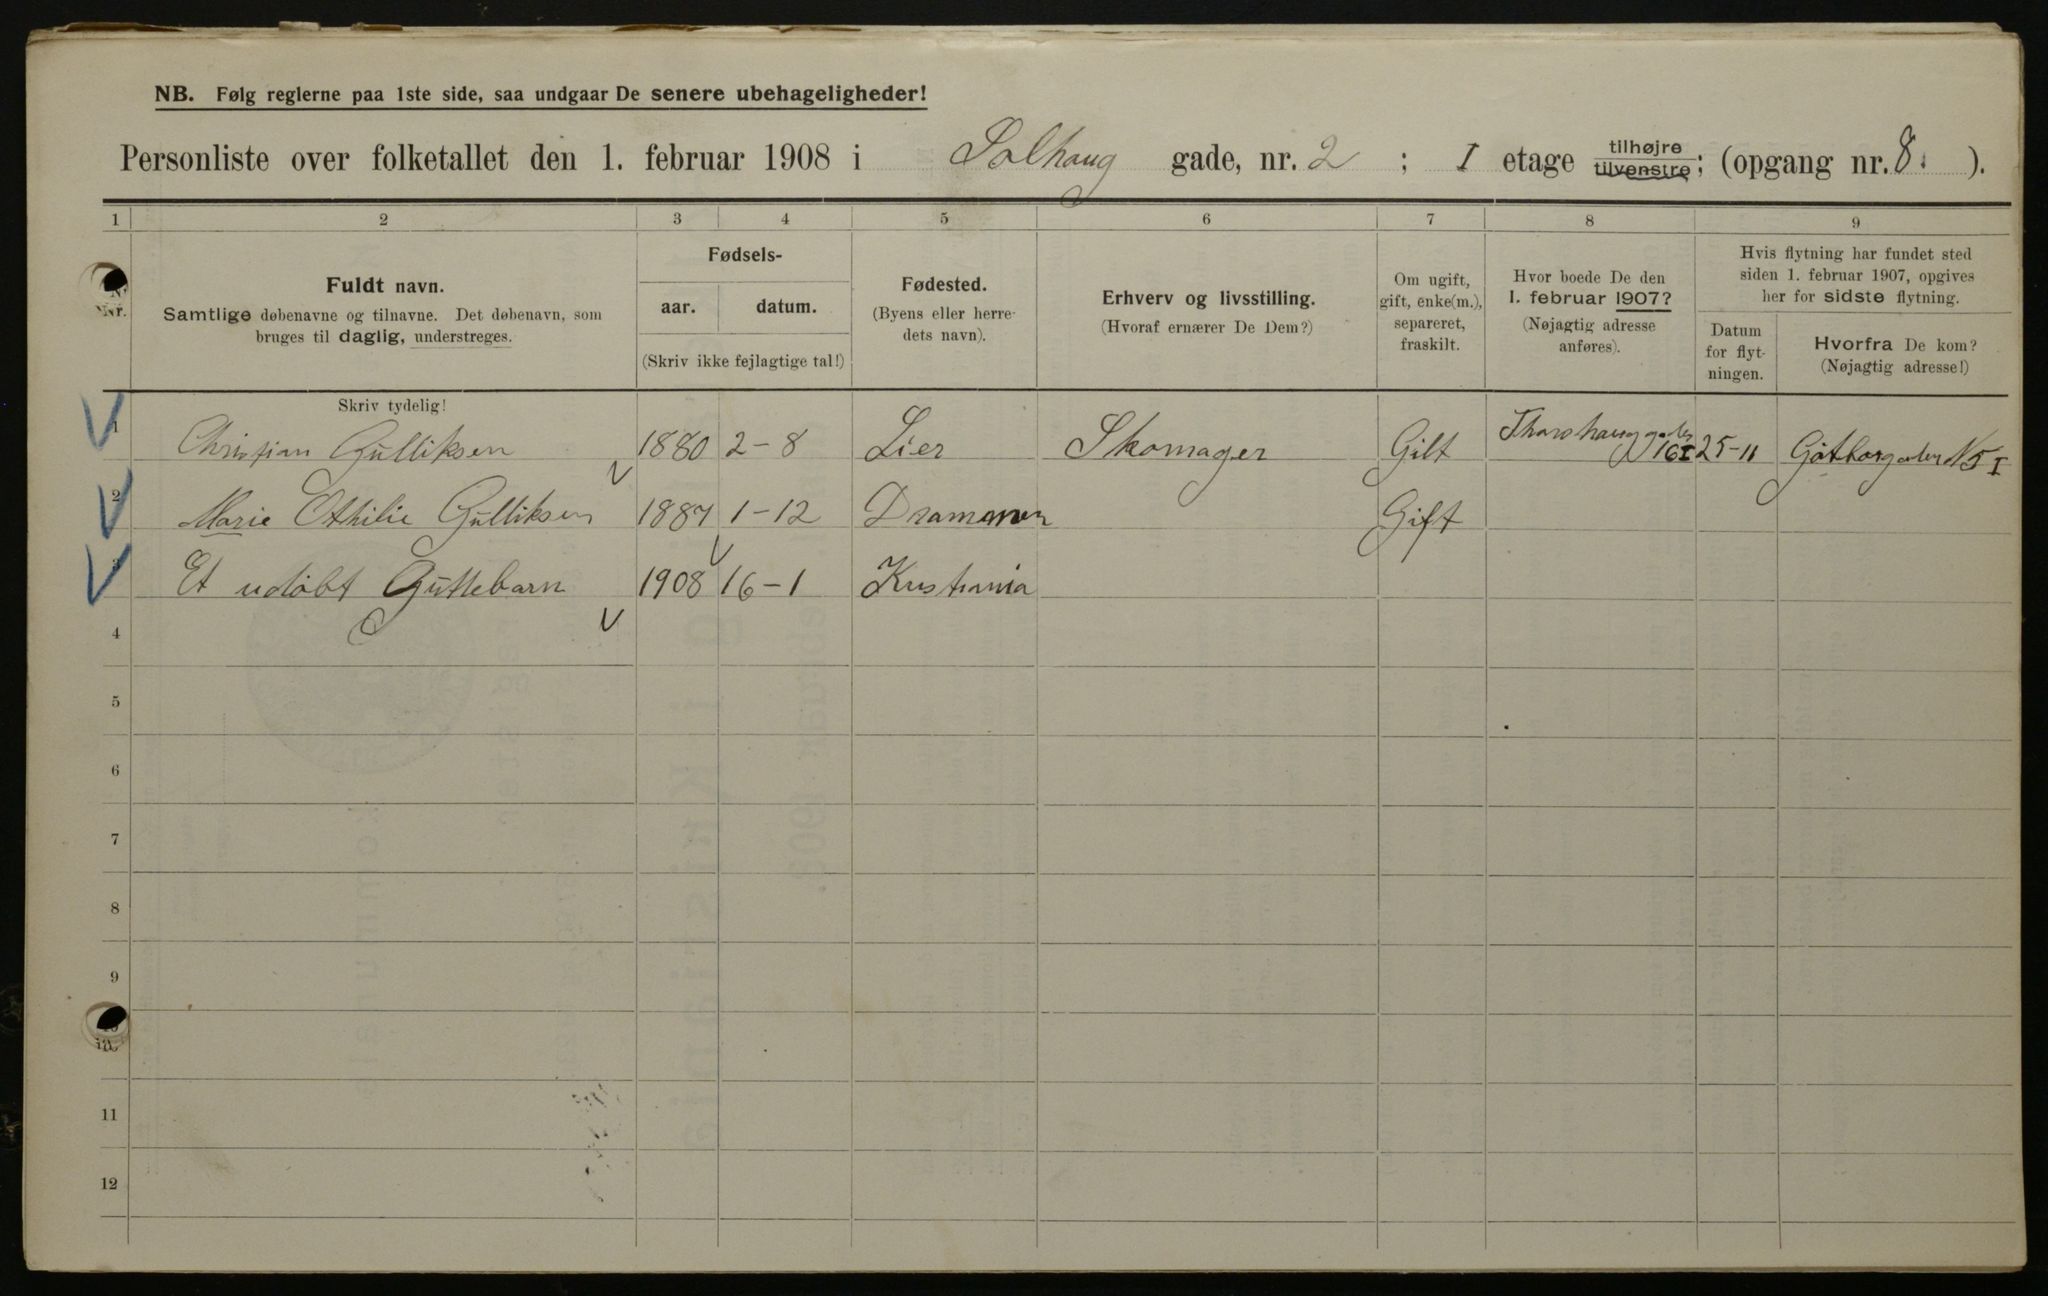 NB. Følg reglerne paa 1ste side, saa undgaar De senere ubehageligheder!
Personliste over folketallet den 1. februar 1908 i Solhaug gade, nr. 2 ; I etage tilhøjre tilvenstre; (opgang nr. 8. ).
1 2 3 4 5 6 7 8 9
Nr.
Fuldt navn.
Samtlige døbenavne og tilnavne. Det døbenavn, som
bruges til daglig, understreges.
Fødsels-
aar. datum.
(Skriv ikke fejlagtige tal!)
Fødested.
(Byens eller herre-
dets navn).
Erhverv og livsstilling.
(Hvoraf ernærer De Dem?)
Om ugift,
gift, enke(m.),
separeret,
fraskilt.
Hvor boede De den
1. februar 1907?
(Nøjagtig adresse
anføres).
Hvis flytning har fundet sted
siden 1. februar 1907, opgives
her for sidste flytning.
Datum
for flyt-
ningen.
Hvorfra De kom?
(Nøjagtig adresse!)
Skriv tydelig!
1 Christian Gulliksen 1880 2-8 Lier Skomager Gift 16 I 25-11 N 5 I
2 Marie Othilie Gulliksen 1887 1-12 Drammen Gift
3 Et udøbt Guttebarn 1908 16-1 Kristiania
4
5
6
7
8
9
10
11
12